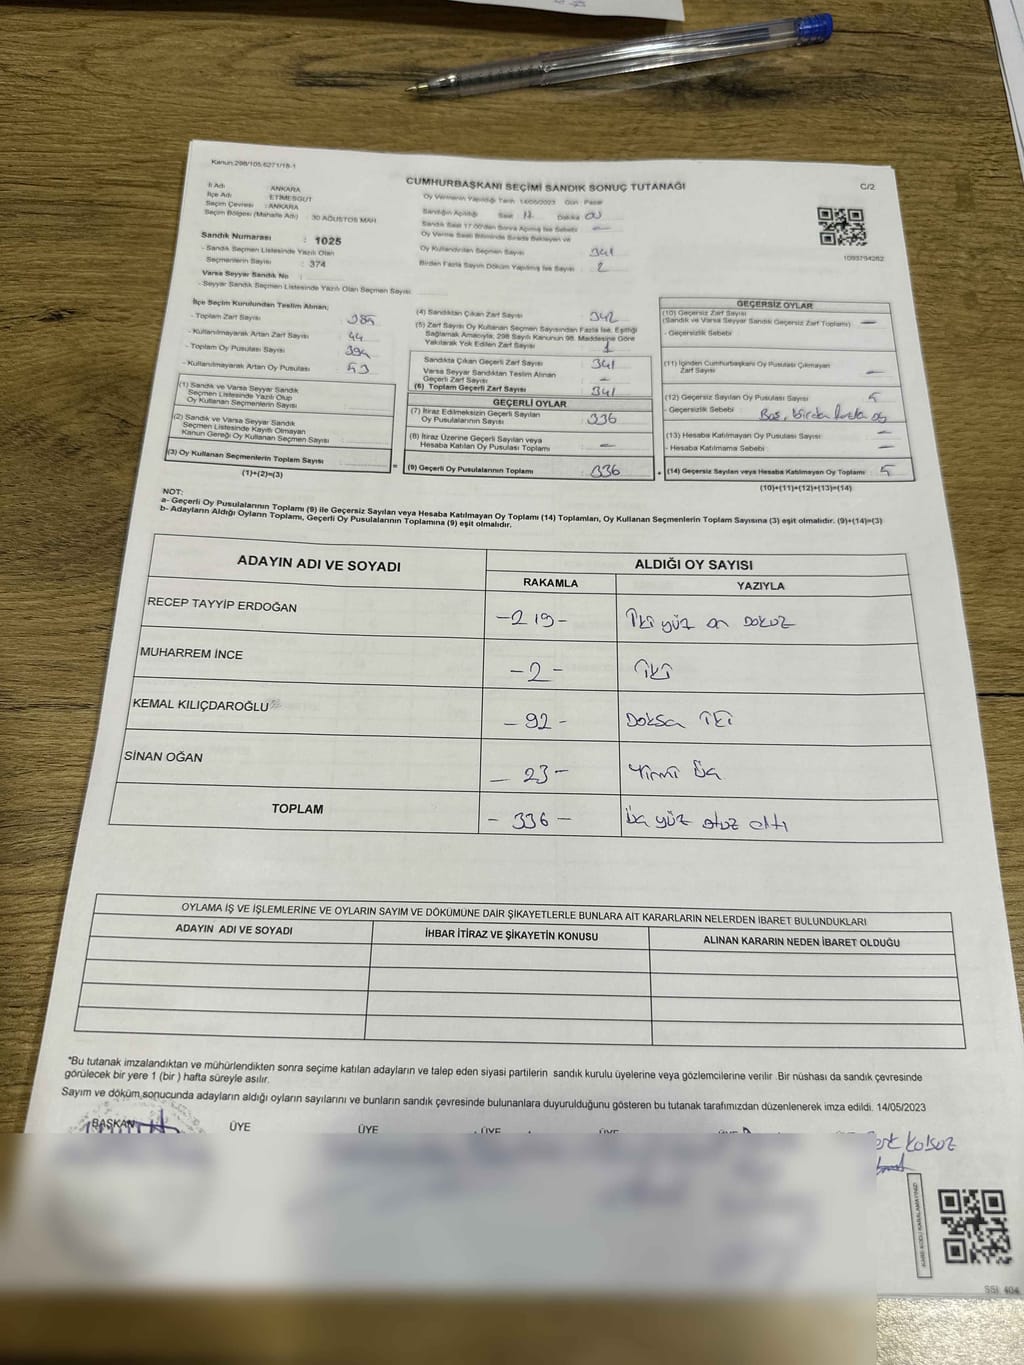 Kanun:298/105,6271/18-1
CUMHURBAŞKANI SEÇİMİ SANDIK SONUÇ TUTANAĞI
C/2
İl Adı : ANKARA
İlçe Adı : ETİMESGUT
Seçim Çevresi : ANKARA
Seçim Bölgesi (Mahalle Adı) : 30 AĞUSTOS MAH
Sandık Numarası : 1025
- Sandık Seçmen Listesinde Yazılı Olan
Seçmenlerin Sayısı : 374
Varsa Seyyar Sandık No :
- Seyyar Sandık Seçmen Listesinde Yazılı Olan Seçmen Sayısı
Oy Vermenin Yapıldığı Tarih 14/05/2023 Gün : Pazar
Sandığın Açıldığı Saat 17 Dakika 00
Sandık Saat 17.00'den Sonra Açılmış İse Sebebi —
Oy Verme Saati Bitiminde Sırada Bekleyen ve
Oy Kullandırılan Seçmen Sayısı 341
Birden Fazla Sayım Döküm Yapılmış İse Sayısı 2
1093794262
İlçe Seçim Kurulundan Teslim Alınan;
- Toplam Zarf Sayısı
- Kullanılmayarak Artan Zarf Sayısı 44
- Toplam Oy Pusulası Sayısı 394
- Kullanılmayarak Artan Oy Pusulası 53
(1) Sandık ve Varsa Seyyar Sandık
Seçmen Listesinde Yazılı Olup
Oy Kullanan Seçmenlerin Sayısı
(2) Sandık ve Varsa Seyyar Sandık
Seçmen Listesinde Kayıtlı Olmayan
Kanun Gereği Oy Kullanan Seçmen Sayısı
(3) Oy Kullanan Seçmenlerin Toplam Sayısı
(1)+(2)=(3)
(4) Sandıktan Çıkan Zarf Sayısı 342
(5) Zarf Sayısı Oy Kullanan Seçmen Sayısından Fazla İse, Eşitliği
Sağlamak Amacıyla; 298 Sayılı Kanunun 98. Maddesine Göre
Yakılarak Yok Edilen Zarf Sayısı 1
Sandıkta Çıkan Geçerli Zarf Sayısı 341
Varsa Seyyar Sandıktan Teslim Alınan
Geçerli Zarf Sayısı —
(6) Toplam Geçerli Zarf Sayısı 341
GEÇERLİ OYLAR
(7) İtiraz Edilmeksizin Geçerli Sayılan
Oy Pusulalarının Sayısı 336
(8) İtiraz Üzerine Geçerli Sayılan veya
Hesaba Katılan Oy Pusulası Toplamı —
= (9) Geçerli Oy Pusulalarının Toplamı 336
GEÇERSİZ OYLAR
(10) Geçersiz Zarf Sayısı
(Sandık ve Varsa Seyyar Sandık Geçersiz Zarf Toplamı) —
- Geçersizlik Sebebi
(11) İçinden Cumhurbaşkanı Oy Pusulası Çıkmayan
Zarf Sayısı —
(12) Geçersiz Sayılan Oy Pusulası Sayısı 5
- Geçersizlik Sebebi Boş, birden fazla oy
(13) Hesaba Katılmayan Oy Pusulası Sayısı —
- Hesaba Katılmama Sebebi —
+ (14) Geçersiz Sayılan veya Hesaba Katılmayan Oy Toplamı 5
(10)+(11)+(12)+(13)=(14)
NOT:
a- Geçerli Oy Pusulalarının Toplamı (9) ile Geçersiz Sayılan veya Hesaba Katılmayan Oy Toplamı (14) Toplamları, Oy Kullanan Seçmenlerin Toplam Sayısına (3) eşit olmalıdır. (9)+(14)=(3)
b- Adayların Aldığı Oyların Toplamı, Geçerli Oy Pusulalarının Toplamına (9) eşit olmalıdır.
ADAYIN ADI VE SOYADI ALDIĞI OY SAYISI
RAKAMLA YAZIYLA
RECEP TAYYİP ERDOĞAN -219- İki yüz on Dokuz
MUHARREM İNCE -2- iki
KEMAL KILIÇDAROĞLU -92- Doksa iki
SİNAN OĞAN -23- Yirmi üç
TOPLAM -336- üç yüz otuz altı
OYLAMA İŞ VE İŞLEMLERİNE VE OYLARIN SAYIM VE DÖKÜMÜNE DAİR ŞİKAYETLERLE BUNLARA AİT KARARLARIN NELERDEN İBARET BULUNDUKLARI
ADAYIN ADI VE SOYADI İHBAR İTİRAZ VE ŞİKAYETİN KONUSU ALINAN KARARIN NEDEN İBARET OLDUĞU
*Bu tutanak imzalandıktan ve mühürlendikten sonra seçime katılan adayların ve talep eden siyasi partilerin sandık kurulu üyelerine veya gözlemcilerine verilir .Bir nüshası da sandık çevresinde
görülecek bir yere 1 (bir ) hafta süreyle asılır.
Sayım ve döküm,sonucunda adayların aldığı oyların sayılarını ve bunların sandık çevresinde bulunanlara duyurulduğunu gösteren bu tutanak tarafımızdan düzenlenerek imza edildi. 14/05/2023
BAŞKAN ÜYE ÜYE ÜYE ÜYE
SSİ 404